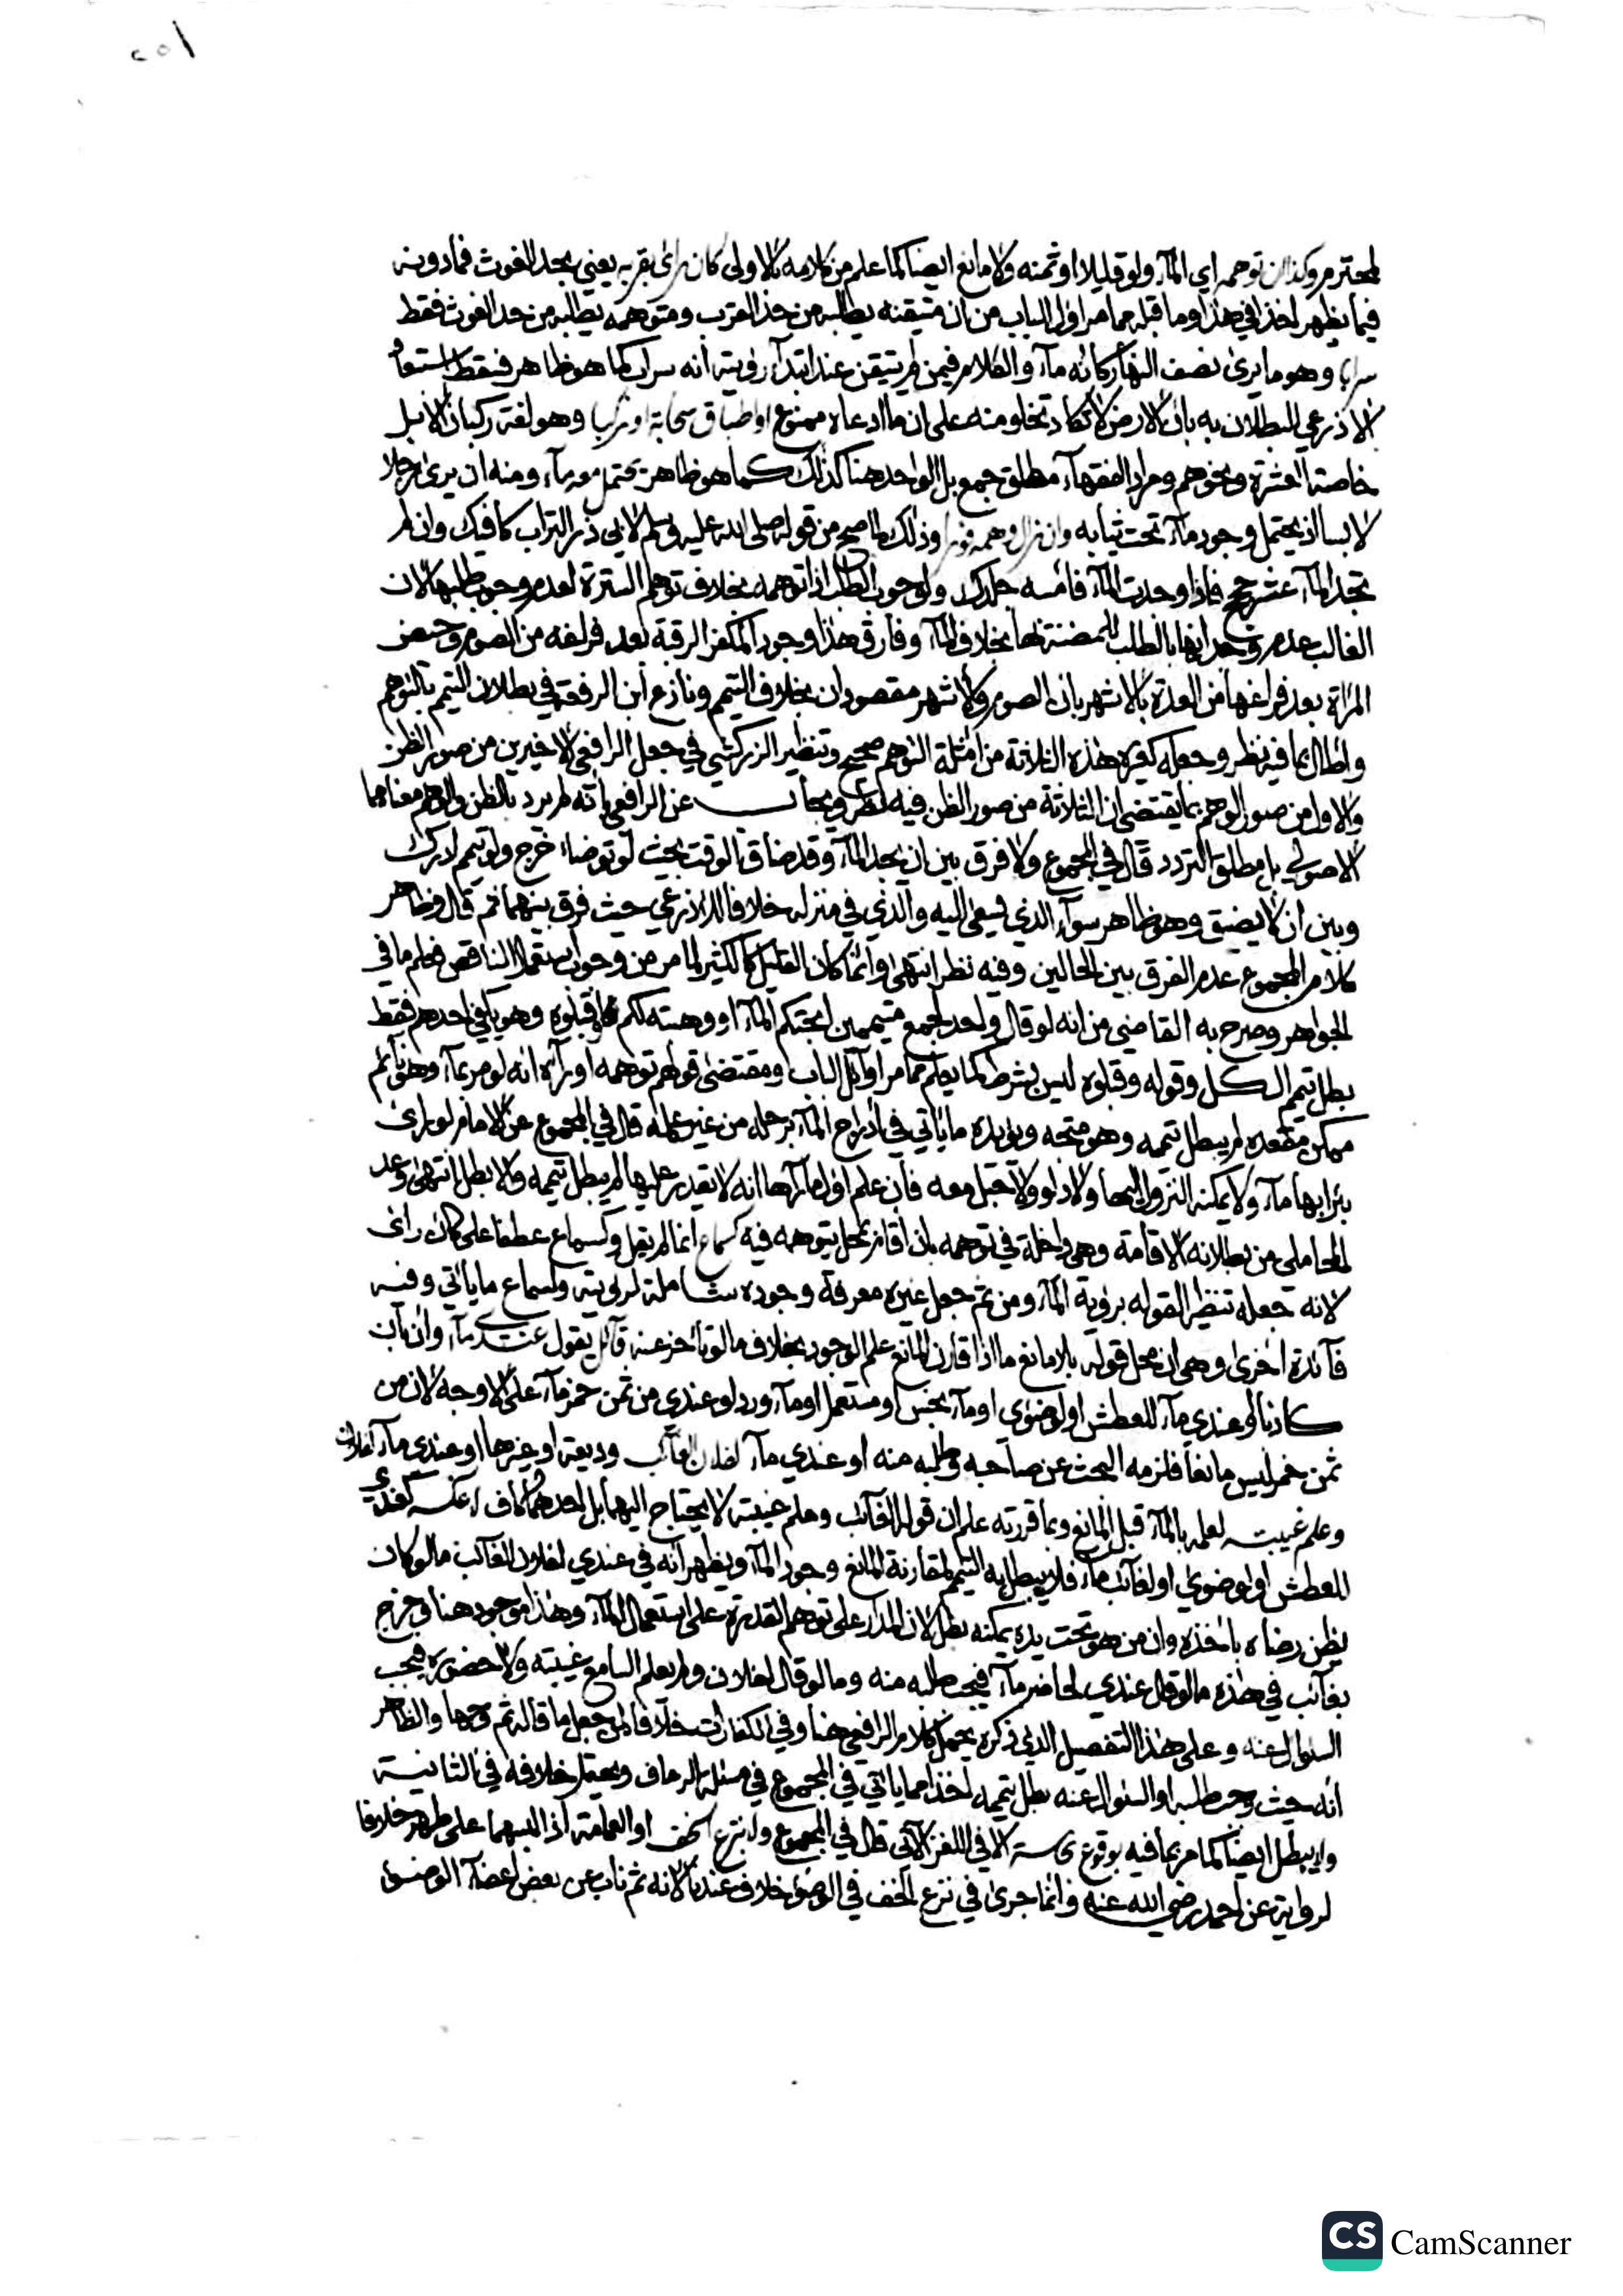 ٢٥١
لمحترم وكذا ان توهمه اي الماء ولو قليلا او ثمنه ولا مانع ايضا كما علم من كلامه بالاولى كان رأى بقربه يعني بحد الغوث فما دونه
فيما يظهر اخذا في هذا وما قبله مما مر اول الباب من ان متيقنه يطلبه من حد القرب ومتوهمه يطلبه من حد الغوث فقط
سرابا وهو ما يرى نصف النهار كانه ماء والكلام فيمن لم يتيقن عند ابتداء رؤيته انه سراب كما هو ظاهر فسقط
الاذرعي للبطلان به بان الارض لا تكاد تخلو منه على ان ما ادعاه ممنوع او اطباق سحابة او ركبا وهو لغة ركبان الابل
خاصة العشرة ونحوهم ومراد الفقهاء مطلق جمع بل الواحد هنا كذلك كما هو ظاهر يحتمل معه ماء ومنه ان يرى رجلا
لابسا اذ يحتمل وجود ماء تحت ثيابه وان زال وهمه فورا وذلك لما صح من قوله صلى الله عليه وسلم لابي ذر التراب كافيك وان لم
تجد الماء عشر حجج فاذا وجدت الماء فامسه جلدك ولوجوب الطلب اذا توهمه بخلاف توهم السترة لعدم وجوب طلبها لان
الغالب عدم وجدانها بالطلب للمضنة بها بخلاف الماء وفارق هذا وجود المكفر الرقبة بعد فراغه من الصوم وحيض
المراة بعد فراغها من العدة بالاشهر بان الصوم والاشهر مقصودان بخلاف التيمم ونازع ابن الرفعة في بطلان التيمم بالتوهم
واطال بما فيه نظر وجعله كغيره هذه الثلاثة من امثلة التوهم صحيح وتنظير الزركشي في جعل الرافعي الاخيرين من صور الظن
والاول من صور الوهم بما يقتضي ان الثلاثة من صور الظن فيه نظر ويجاب عن الرافعي بانه لم يرد بالظن والوهم معناهما
الاصولي بل مطلق التردد قال في المجموع ولا فرق بين ان يجد الماء وقد ضاق الوقت بحيث لو توضاء خرج ولو تيمم ادرك
وبين ان لا يضيق وهو ظاهر سواء الذي فيسعى اليه والذي في منزله خلافا للاذرعي حيث فرق بينهما ثم قال وظاهر
كلام المجموع عدم الفرق بين الحالين وفيه نظر انتهى وانما كان القليل كالكثير لما مر من وجوب استعمال الناقص فعلم ما في
الجواهر وصرح به القاضي من انه لو قال واحد لجمع متيممين ابحتكم الماء او وهبته لكم فقبلوه وهو يكفي احدهم فقط
بطل تيمم الكل وقوله وقبلوه ليس بشرط كما يعلم مما مر اوائل الباب ومقتضى قولهم توهمه او رآه انه لو مر بماء وهو نائم
ممكن مقعده لم يبطل تيممه وهو متجه ويؤيده ما ياتي في ادراج الماء برحله من غير علمه قال في المجموع عن الامام لو راى
بئرا بها ماء ولا يمكنه النزول اليها ولا دلو ولا حبل معه فان علم اول ما رآها انه لا يقدر عليها لم يبطل تيممه والا بطل انتهى وعد
المحاملي من بطلانه الاقامة وهي داخلة في توهمه بان اقام بمحل يتوهمه فيه كسماع انما لم يقل وكسماع عطفا على كان رأى
لانه جعله تنظيرا لقوله برؤية الماء ومن ثم جعل غيره معرفة وجوده شاملة لرؤيته ولسماع ما ياتي وفيه
فائدة اخرى وهي ان محل قوله بلا مانع ما اذا قارن المانع علم الوجود بخلاف ما لو تاخر عنه قائل يقول عندي ماء وان بان
كاذبا او عندي ماء للعطش او لوضوئي او ماء نجس او مستعمل او ماء ورد او عندي من ثمن خمر ماء على الاوجه لان من
ثمن خمر ليس مانعا فلزمه البحث عن صاحبه وطلبه منه او عندي ماء لفلان الغائب وديعة او غيرها او عندي ماء لفلان
وعلم غيبته لعلمه بالماء قبل المانع وبما قررته علم ان قوله الغائب وعلم غيبته لا يحتاج اليهما بل احدهما كاف لا عكسه كعندي
للعطش او لوضوئي او لغائب ماء فلا يبطل به التيمم لمقارنة المانع وجود الماء ويظهر انه في عندي لفلان الغائب ما لو كان
يظن رضاه باخذه وان من هو تحت يده يمكنه بطل لان المدار على توهم القدرة على استعمال الماء وهذا موجود هنا وخرج
بغائب في هذه ما لو قال عندي لحاضر ماء فيجب طلبه منه وما لو قال لفلان ولم يعلم السامع غيبته ولا حضوره فيجب
السؤال عنه وعلى هذا التفصيل الذي ذكره يحمل كلام الرافعي هنا وفي الكفارات خلافا لمن جعل ما قاله ثم وجها والظاهر
انه حيث وجب طلبه او السؤال عنه بطل تيممه اخذا مما ياتي في المجموع في مسئلة الرعاف ويحتمل خلافه في الثانية
ولا يبطل ايضا كما مر بما فيه بوقوع الا في اللغز الآتي قال في المجموع ولا بنزع الخف او العمامة اذا لبسهما على طهر خلافا
لرواية عن احمد رضي الله عنه وانما جرى في نزع الخف في الوضوء خلاف عندنا لانه ثم ناب عن بعض اعضاء الوضوء
CS CamScanner